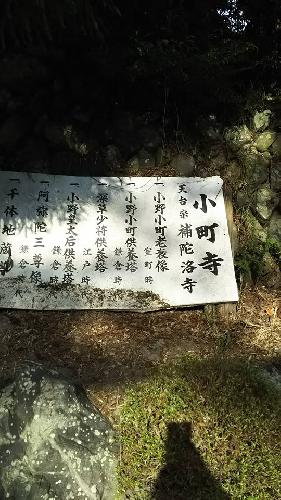 小町寺
天台宗 補陀洛寺
一 小野小町老衰像
室町時
一 小野小町供養塔
鎌倉時
一 深草少将供養塔
江戸時
一 小野皇太后供養塔
鎌倉時
一 阿弥陀三尊像
鎌倉時
一 千体地蔵